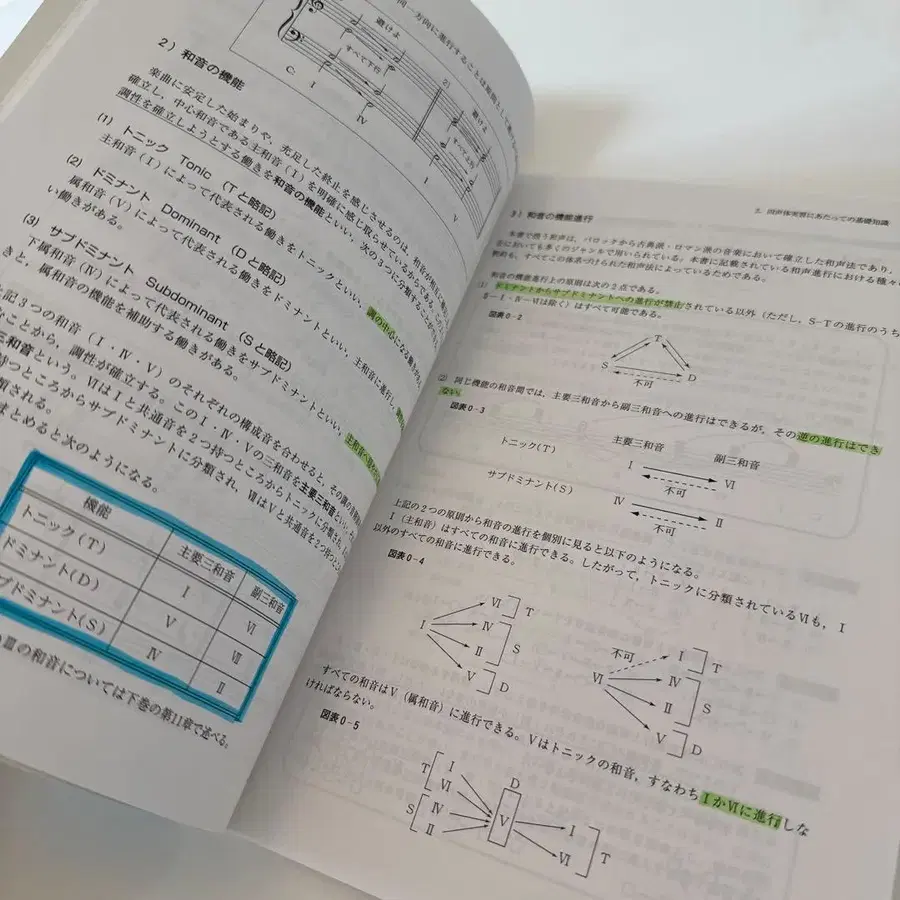 同一方向に進行することは原則として避け
避けよ
すべて下行
C:
I
IV
2)
避けよ
すべて上行
I
V
2) 和音の機能
楽曲に安定した始まりや、充足した終止を感じさせるのは、和音が相互に
確立し、中心和音である主和音(I)を明確に感じ取らせているからである。この
調性を確立しようとする働きを和音の機能といい、次の3つに分類することが
(1) トニック Tonic (Tと略記)
主和音(I)によって代表される働きをトニックといい、調の中心になる働き
(2) ドミナント Dominant (Dと略記)
属和音(V)によって代表される働きをドミナントといい、主和音に進行し
い働きがある。
(3) サブドミナント Subdominant (Sと略記)
下属和音(IV)によって代表される働きをサブドミナントといい、主和音へ
きと、属和音の機能を補助する働きがある。
上記3つの和音(I・IV・V)のそれぞれの構成音を合わせると、その調の音階
なことから、調性が確立する。このI・IV・Vの三和音を主要三和音といい
三和音という。VIはIと共通音を2つ持つところからトニックに分類され、
持つところからサブドミナントに分類され、VIIはVと共通音を2つ持つ
類される。
まとめると次のようになる。
機能 主要三和音 副三和音
トニック(T) I VI
ドミナント(D) V VII
ブドミナント(S) IV II
のIIIの和音については下巻の第11章で述べる。
2. 四声体実習にあたっての基礎知識
3) 和音の機能進行
本書で扱う和声は、バロックから古典派・ロマン派の音楽において確立した和声法であり、
音においても多くのジャンルで用いられている。本書に記載されている和声進行における様々
則も、すべてこの体系づけられた和声法によっているためである。
和音の機能進行上の原則は次の2点である。
(1) ドミナントからサブドミナントへの進行が禁止されている以外(ただし、S-Tの進行のうち
II-I・IV-VIは除く)はすべて可能である。
図表0-2
T
S
D
不可
② 同じ機能の和音間では、主要三和音から副三和音への進行はできるが、その逆の進行はでき
ない。
図表0-3
主要三和音 副三和音
トニック(T) I VI
不可
サブドミナント(S) IV II
不可
上記の2つの原則から和音の進行を個別に見ると以下のようになる。
I(主和音)はすべての和音に進行できる。したがって、トニックに分類されているVIも、I
以外のすべての和音に進行できる。
図表0-4
I
VI
T
IV
II
S
V
D
VI
不可
I
T
IV
II
S
V
D
すべての和音はV(属和音)に進行できる。Vはトニックの和音、すなわちIかVIに進行しな
ければならない。
図表0-5
T
I
VI
S
IV
II
D
V
I
VI
T